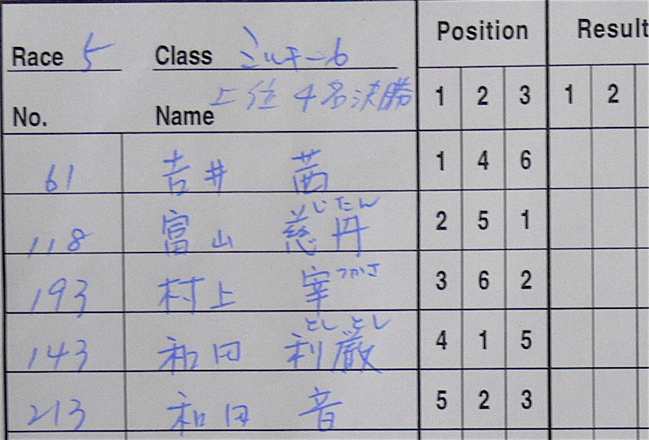 Race 5 Class ミルキー6 Position Result
上位4名決勝
No. Name 1 2 3 1 2
61 吉井 茜 1 4 6
じたん
118 富山 慈丹 2 5 1
193 村上 宰 つかさ 3 6 2
としとし
143 和田 利厳 4 1 5
213 和田 音 5 2 3